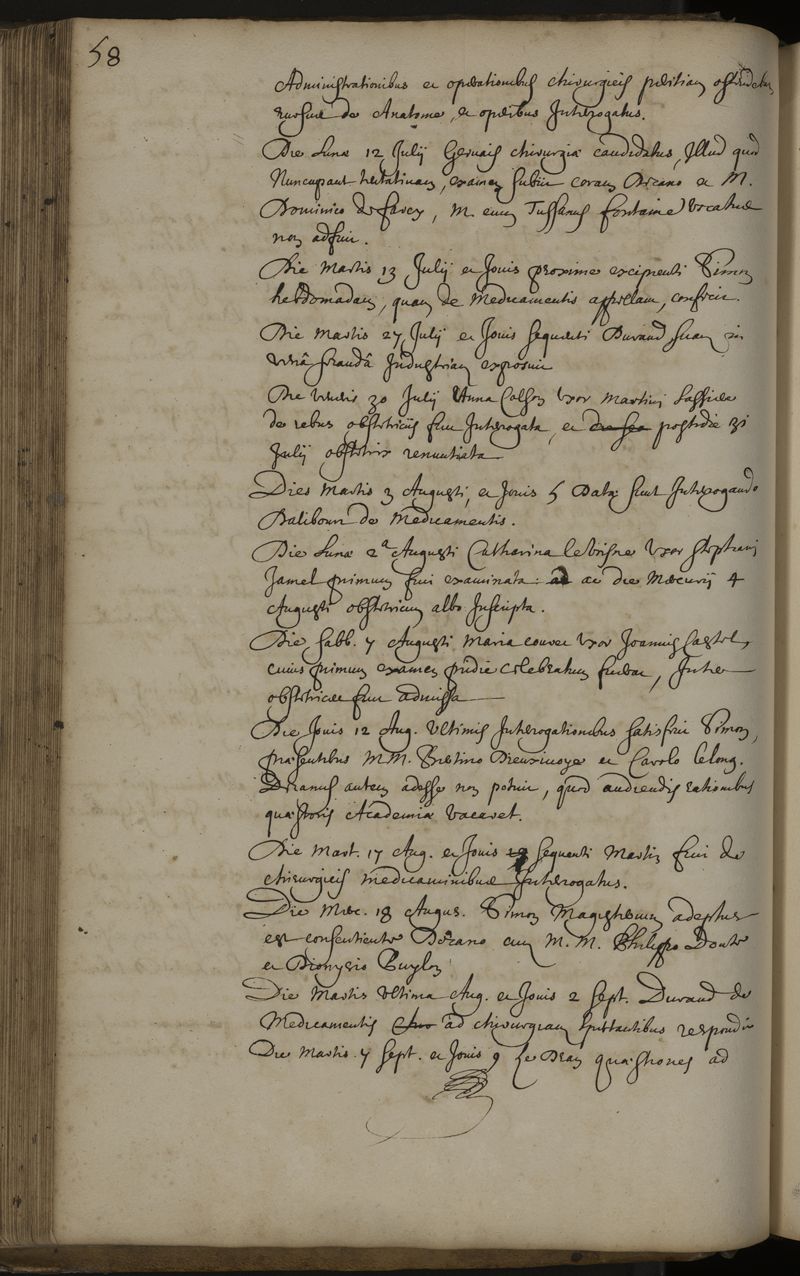 58
Administrationibus et operationibus chirurgicis peritiam ostendebat
rursus de Anatome, et operibus Interrogatus.
Die Lunæ 12 Julij Gervais chirurgiæ candidatus, Illud quod
Nuncupant tentativam, examen subiit coram Decano et M.
Dominico de farcy, M. enim Tussanus fontaine vocatus
non adfuit.
Die Martis 13 Julij et Jovis proxime excipienti Simon
hebdomadam, quam de Medicamentis appellant, confecit.
Die Martis 27 Julij et Jovis sequenti Durand suam in
venâ secandâ Industriam exposuit
Die veneris 30 Julij Anna Colson uxor Martini
de rebus obstetriciis fuit Interrogata, et postridie 31
Julij obstetrix renuntiata
Dies Martis 3 Augusti, et Jovis 5 Data sunt Interrogando
Balibourt de Medicamentis.
Die Lunæ 2a Augusti Catharina uxor stephani
Jamel primum fuit examinata: ac die Mercurij 4
Augusti obstetricum albo Inscripta.
Die sabb. 7 Augusti Maria couvet uxor Joannis Castel,
cuius primum examen pridie celebratum fuerat, Inter
obstetrices fuit admissa
Die Jovis 12 Aug. Ultimis Interrogationibus satisfecit Simon,
præsentibus MM. Bertino Dieuxivoye et Carolo le long.
Decanus autem adesse non potuit, quod audiendis rationibus
quæstoris Academiæ vacaret.
Die Mart. 17 Aug. et Jovis sequenti Martin fuit de
chirurgicis medicaminibus Interrogatus.
Die Merc. 18 Augus. Simon Magisterium adeptus
est consentiente Decano cum M.M. Philippo Douté
et Dionysio Puylon
Die Martis ultima Aug. et Jovis 2 sept. Durand de
Medicamentis ad chirurgiam spectantibus respondit
Die Martis 7 sept. et Jovis 9 Le Dran quæstiones ad